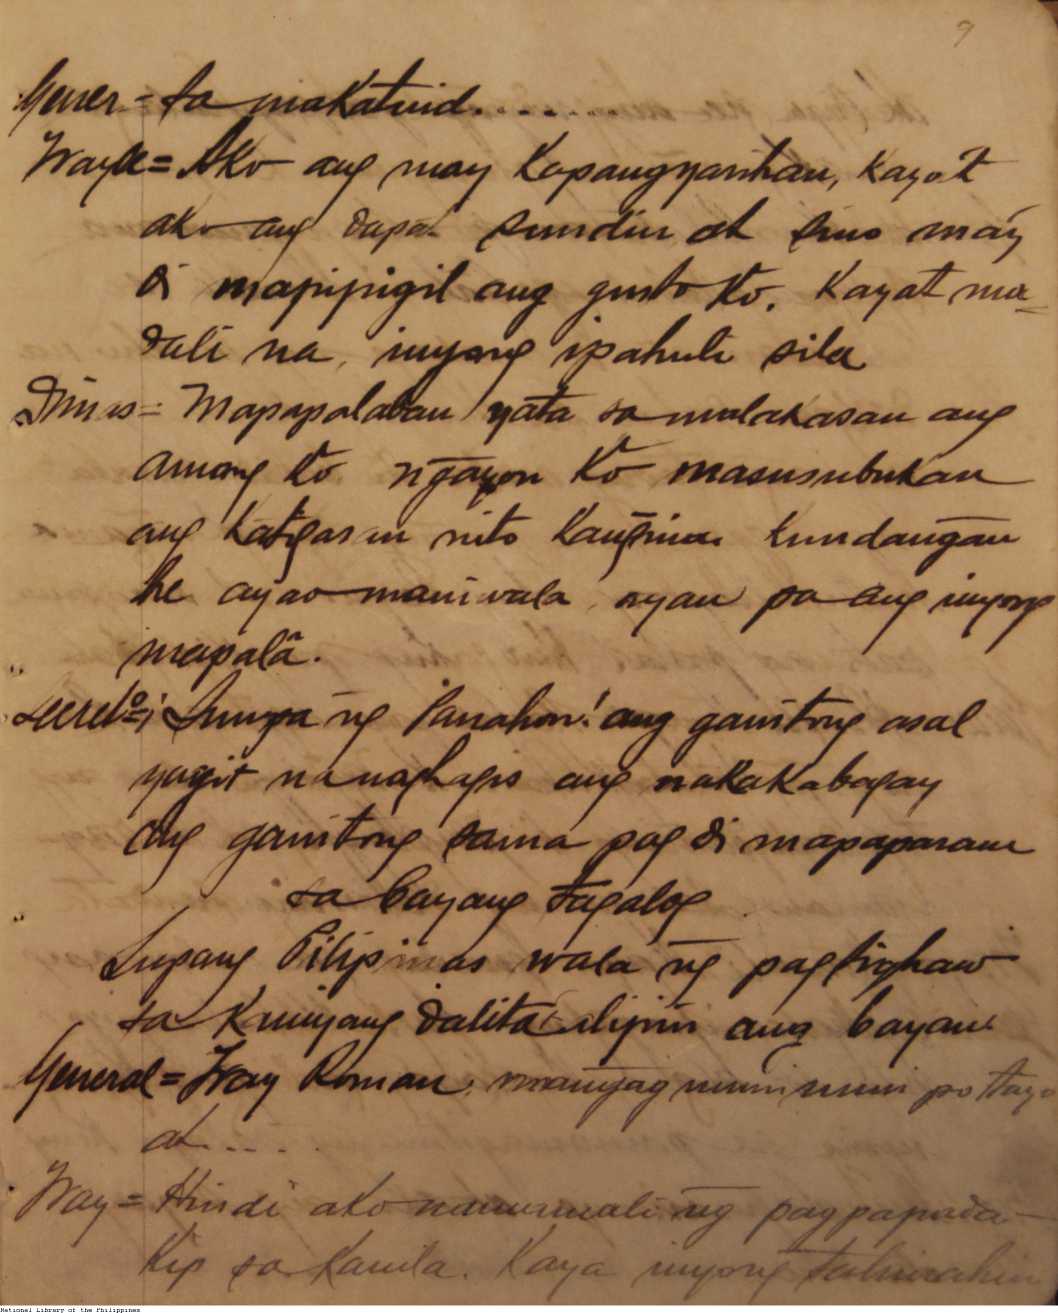 9
Gener = Sa makatuid........
Frayle = Ako ang may kapangyarihan, kayat
ako ang dapat sundin at sino may
di mapipigil ang gusto ko. Kayat ma=
dali na, inyong ipahuli sila
Dimas = Mapapalaban yata sa malakasan ang
among ko ngayon ko masusubukan
ang katigasan nito kangina kundangan
he ayao maniwala, ayan pa ang inyong
mapalâ.
Secret.o = ¡Sumpa ng Panahon! ang ganitong asal
ang nakakabagay
ang ganitong sama pag di mapaparam
sa bayang tagalog
Lupang Pilipinas wala ng pagtighaw
sa kaniyang dalita alipin ang bayan!
General = Fray Roman, mangag munimuni po tayo
at....
Fray = Hindi ako namamali ng pagpapada-
kip sa kanila. Kaya inyong
National Library of the Philippines